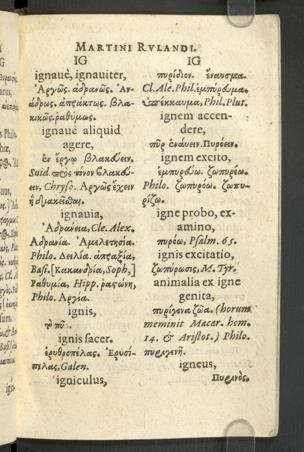 MARTINI RVLANDI.
IG
ignauè, ignauiter,
Ἀργῶς. ἀδρανῶς. Ἀν-
άδρως. ἀπράκτως. βλα-
κικῶς. ῥαθύμως.
ignauè aliquid
agere,
ἐν ἔργῳ βλακεύειν.
Suid.
Chryso. Ἀργῶς ἔχειν
ignauia,
Ἀδράνεια, Cle. Alex.
Ἀδρανία. Ἀμελετησία.
Philo. Δειλία. ἀπραξία,
Basi. [κακανδρία, Soph.]
Ῥαθυμία, Hipp. ῥαστώνη,
Philo. Ἀργία.
ignis,
τὸ πῦρ.
ignis sacer.
ἐρυθροπελας. Ἐρυσί-
πελας, Galen.
igniculus,
IG
πυρίδιον. ἔναυσμα.
Cl. Ale. Phil. ἐμπύρευμα.
ὑπέκκαυμα, Phil. Plut.
ignem accen-
dere,
πῦρ ἐναύειν. Πυρόειν.
ignem excito,
ἐμπυρεύω. ζωπυρέω.
Philo. ζωπυρόω. ζωπυ-
ρίζω.
igne probo, ex-
amino,
πυρόω, Psalm. 65.
ignis excitatio,
ζωπύρωσις, M. Tyr.
animalia ex igne
genita,
πυρίγονα ζῶα. (horum
meminit Macar. hom.
14. & Aristot.) Philo.
πυριγενῆ.
igneus,
Πυρινὸς.